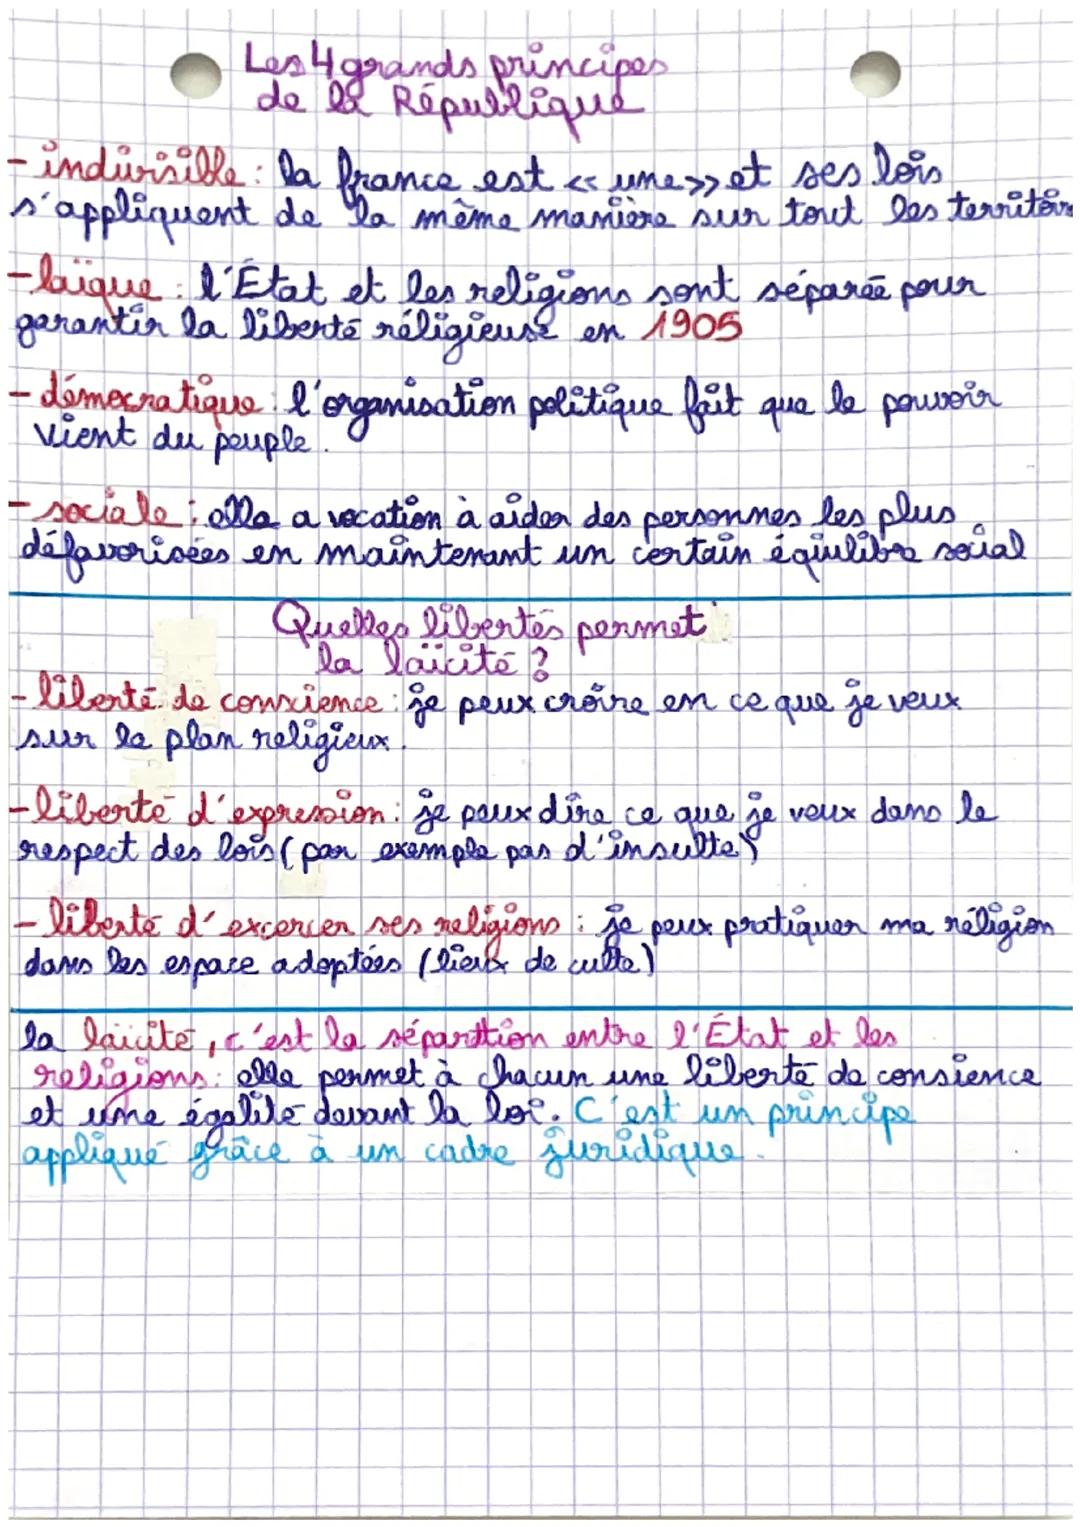 Les 4 grands principes
de la République
- indivisible : la france est << une >> et ses lois
s'appliquent de la même manière sur tout les territoir
- laïque : l'État et les religions sont séparée pour
garantir la liberté réligieuse en 1905
- démocratique : l'organisation politique fait que le pouvoir
vient du peuple.
- sociale : elle a vocation à aider des personnes les plus
défavorisées en maintenant un certain équilibre social
Quelles libertés permet
la laïcité ?
- liberté de conscience : je peux croire en ce que je veux
sur le plan religieux.
- liberté d'expression : je peux dire ce que je veux dans le
respect des lois (par exemple pas d'insulte)
- liberté d'excercer ses religions : je peux pratiquer ma réligion
dans les espace adoptées (lieux de culte)
la laïcité, c'est la séparttion entre l'État et les
religions : elle permet à chacun une liberté de consience
et une égalité devant la loi. C'est un principe
appliqué grâce à un cadre juridique.